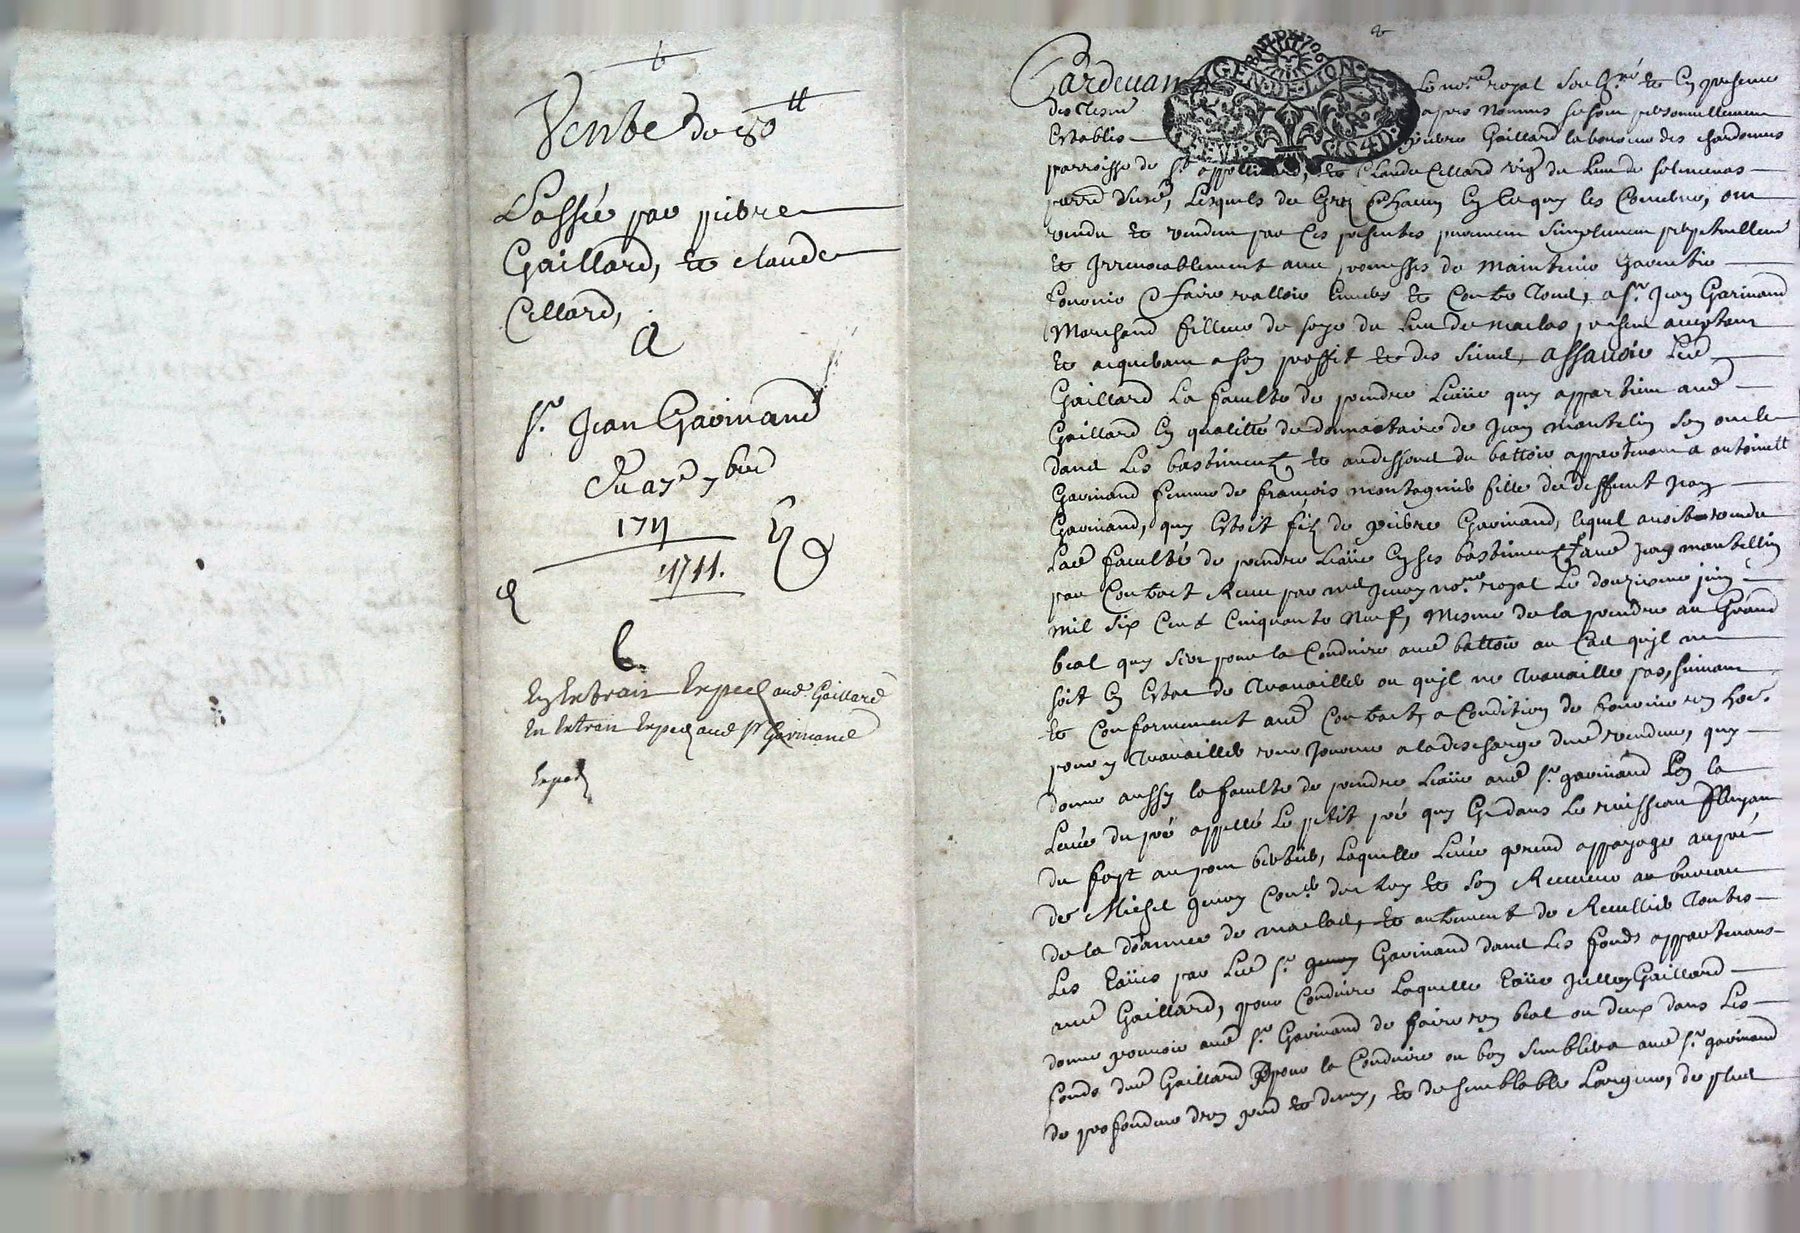 Vente de 80 ₶
Passée par pierre
Gaillard, et claude
Cellard,
A
sr. Jean Garinand
Du 27e 7bre
1711
1711.
En Extrait Exped aud. Gaillard
En Extrait Exped aud sr Garinand
Exped
GEN. DE LION
Pardevant Le nore. royal Soubzné. et En presence
des tesms apres Nommes se sont personnellement
Establis pierre Gaillard laboureur des chardonnes
parroisse de st appollinard, et Claude Cellard du Lieu de
Lesquels de Gré Chacun En Ce quy les Concerne, ont
vendu et vendent par Ces presentes purement simplement perpetuellemt
et Irrevocablement avec promesses de maintenir Garentir
fournir & faire valloir Envers et Contre tous, a sr. Jean Garinand
Marchand filleur de soye du Lieu de maclas present acceptant
et acquerant a son proffit et des siens, assavoir Led
Gaillard La faculte de prendre Leaüe quy appartient aud
Gaillard En qualitté de donnataire de Jean mantelin son oncle
dans Les bastimentz et audessous du battoir appartenant a antoinette
Garinand femme de francois montagnier fille de deffunt Jean
Garinand, quy Estoit filz de pierre Garinand, lequel avoit vendu
Lad faculté de prendre Leaüe En ses bastimentz aud Jean mantellin
par Contract Receu par me Jurey nore royal Le douzieme juin
mil six Cent Cinquante Neuf, Mesme de la prendre au Grand
beal quy sert pour la Conduire aud battoir au Cas qu'jl ne
soit En Estat de travailler ou qu'jl ne travaille pas, suivant
et Conformement aud Contract, a Condition de
pour y travailler une Journée a la descharge dud vendeur, quy
donne aussy la faculte de prendre Leaüe aud sr. garinand En la
Levée du pré appellé Le petit pré quy Est dans Le ruisseau fluyant
du au pont bertier, Laquelle Levée prend appayage au pré
de Michel Jurey Coner. du Roy et son Receveur au bureau
de la doüanne de maclas, et autrement de Recuillir toutes
Les Eaües par Led sr. Garinand dans Les fonds appartenans
aud Gaillard, pour Conduire Laquelle Eaüe Jcelluy Gaillard
donne pouvoir aud sr. Garinand de faire un beal ou deux dans Les
fonds dud Gaillard pour la Conduire ou bon Semblera aud sr. garinand
de profondeur d'un pied et demy, et de semblable Largeur, de plus